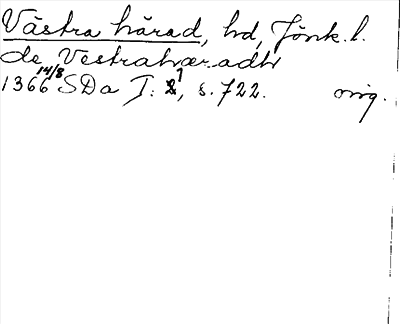 Västra härad, hd, Jönk. l.
de Vestrahæradh
1366 14/8 SDa I: 1, s. 722. orig.